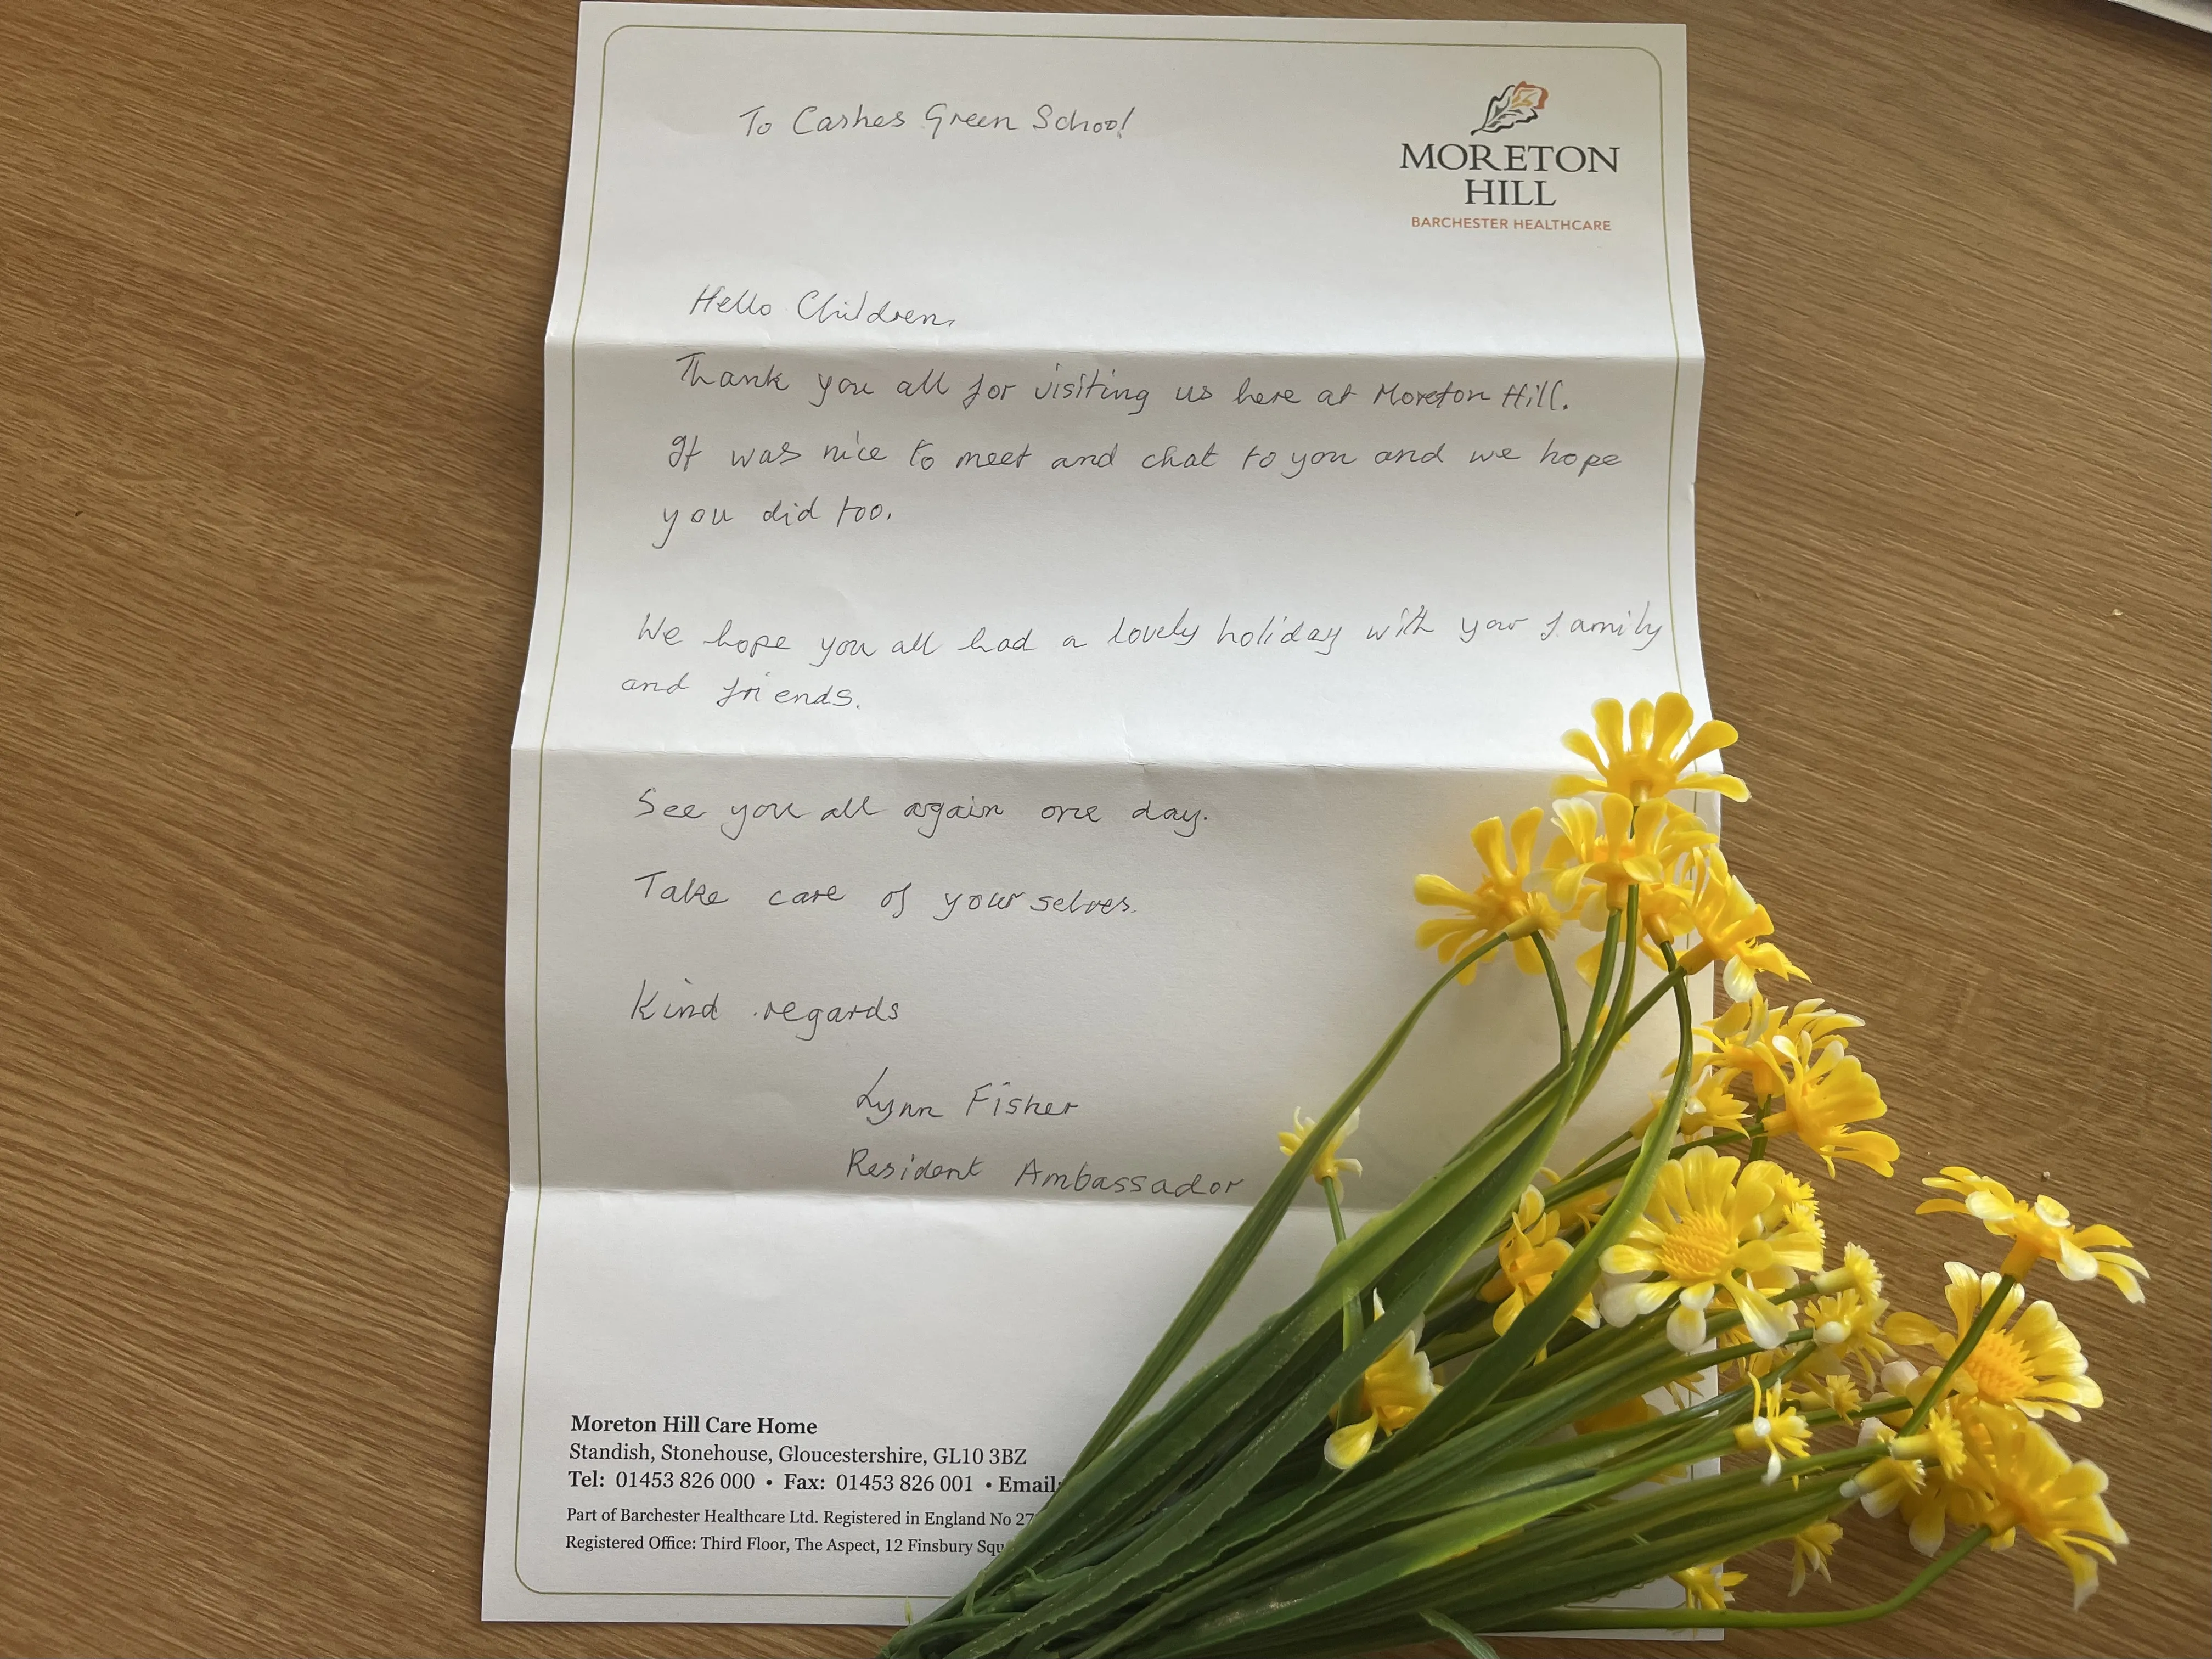 To Cashes Green School
MORETON
HILL
BARCHESTER HEALTHCARE
Hello Children,
Thank you all for visiting us here at Moreton Hill.
It was nice to meet and chat to you and we hope
you did too.
We hope you all had a lovely holiday with your family
and friends.
See you all again one day.
Take care of yourselves.
Kind regards
Lynn Fisher
Resident Ambassador
Moreton Hill Care Home
Standish, Stonehouse, Gloucestershire, GL10 3BZ
Tel: 01453 826 000 • Fax: 01453 826 001 • Email:
Part of Barchester Healthcare Ltd. Registered in England No
Registered Office: Third Floor, The Aspect, 12 Finsbury